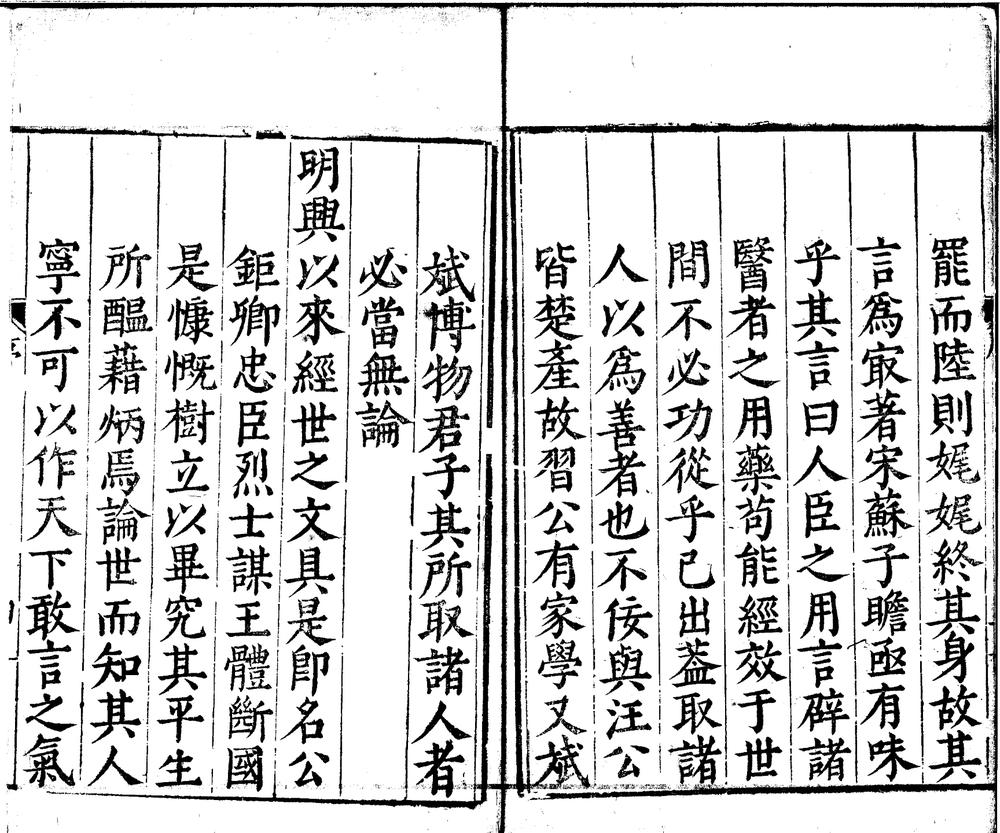 罷而陸則娓娓終其身故其
言爲㝡著宋蘇子瞻亟有味
乎其言曰人臣之用言礕諸
醫者之用藥苟能經效于世
間不必功從乎己出葢取諸
人以爲善者也不佞與汪公
皆楚產故習公有家學又斌
斌博物君子其所取諸人者
必當無論
明興以來經世之文具是卽名公
鉅卿忠臣烈士謀王體斷國
是慷慨樹立以畢究其平生
所醖藉炳焉論世而知其人
寧不可以作天下敢言之氣